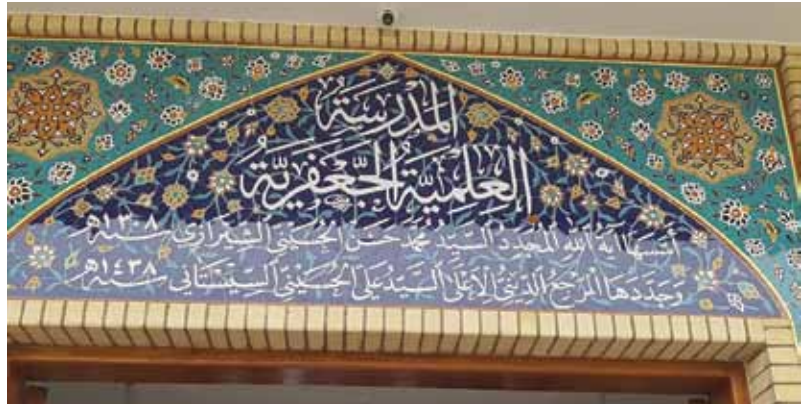 المَدْرَسَةُ
العِلْمِيَّةُ الجَعْفَرِيَّةُ
أسَّسَهَا آيَةُ اللهِ المُجَدِّدُ السَّيِّدُ مُحَمَّد حَسَن الحُسَيْنِيُّ الشِّيرَازِي سَنَة ١٣٠٨هـ
وَجَدَّدَهَا المَرْجِعُ الدِّينِيُّ الأَعْلَى السَّيِّدُ عَلِي الحُسَيْنِيُّ السِّيسْتَانِي سَنَة ١٤٣٨هـ